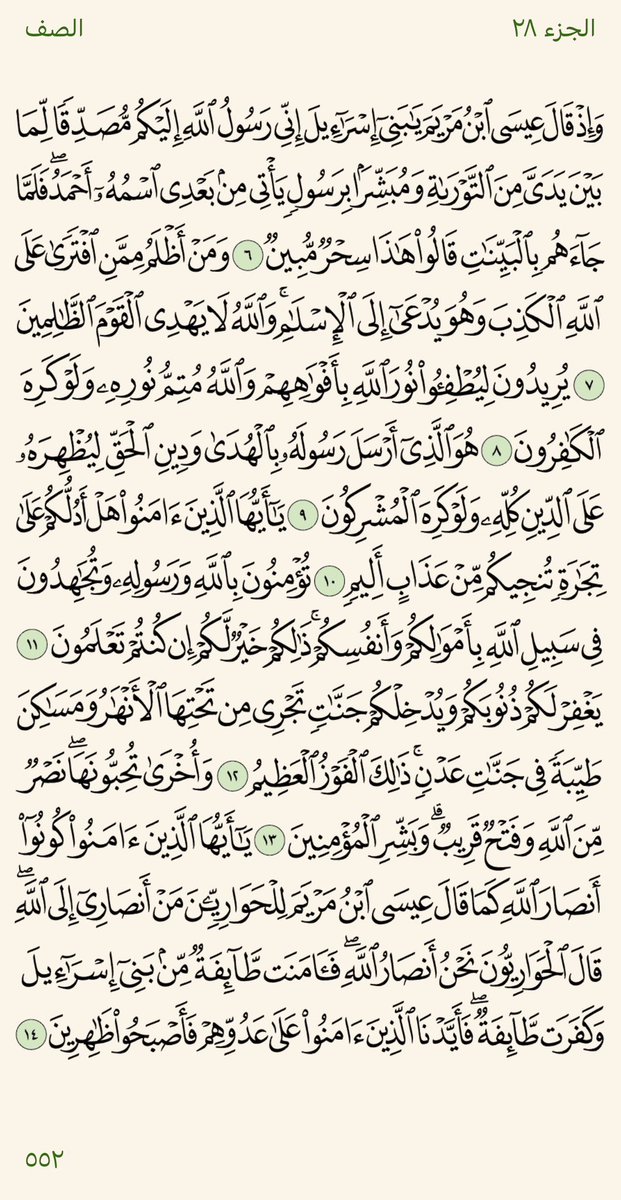 الجزء ٢٨
الصف
وَإِذۡ قَالَ عِيسَى ٱبۡنُ مَرۡيَمَ يَٰبَنِيٓ إِسۡرَٰٓءِيلَ إِنِّي رَسُولُ ٱللَّهِ إِلَيۡكُم مُّصَدِّقٗا لِّمَا
بَيۡنَ يَدَيَّ مِنَ ٱلتَّوۡرَىٰةِ وَمُبَشِّرَۢا بِرَسُولٖ يَأۡتِي مِنۢ بَعۡدِي ٱسۡمُهُۥٓ أَحۡمَدُۖ فَلَمَّا
جَآءَهُم بِٱلۡبَيِّنَٰتِ قَالُواْ هَٰذَا سِحۡرٞ مُّبِينٞ ٦ وَمَنۡ أَظۡلَمُ مِمَّنِ ٱفۡتَرَىٰ عَلَى
ٱللَّهِ ٱلۡكَذِبَ وَهُوَ يُدۡعَىٰٓ إِلَى ٱلۡإِسۡلَٰمِۚ وَٱللَّهُ لَا يَهۡدِي ٱلۡقَوۡمَ ٱلظَّٰلِمِينَ
٧ يُرِيدُونَ لِيُطۡفِـُٔواْ نُورَ ٱللَّهِ بِأَفۡوَٰهِهِمۡ وَٱللَّهُ مُتِمُّ نُورِهِۦ وَلَوۡ كَرِهَ
ٱلۡكَٰفِرُونَ ٨ هُوَ ٱلَّذِيٓ أَرۡسَلَ رَسُولَهُۥ بِٱلۡهُدَىٰ وَدِينِ ٱلۡحَقِّ لِيُظۡهِرَهُۥ
عَلَى ٱلدِّينِ كُلِّهِۦ وَلَوۡ كَرِهَ ٱلۡمُشۡرِكُونَ ٩ يَٰٓأَيُّهَا ٱلَّذِينَ ءَامَنُواْ هَلۡ أَدُلُّكُمۡ عَلَىٰ
تِجَٰرَةٖ تُنجِيكُم مِّنۡ عَذَابٍ أَلِيمٖ ١٠ تُؤۡمِنُونَ بِٱللَّهِ وَرَسُولِهِۦ وَتُجَٰهِدُونَ
فِي سَبِيلِ ٱللَّهِ بِأَمۡوَٰلِكُمۡ وَأَنفُسِكُمۡۚ ذَٰلِكُمۡ خَيۡرٞ لَّكُمۡ إِن كُنتُمۡ تَعۡلَمُونَ ١١
يَغۡفِرۡ لَكُمۡ ذُنُوبَكُمۡ وَيُدۡخِلۡكُمۡ جَنَّٰتٖ تَجۡرِي مِن تَحۡتِهَا ٱلۡأَنۡهَٰرُ وَمَسَٰكِنَ
طَيِّبَةٗ فِي جَنَّٰتِ عَدۡنٖۚ ذَٰلِكَ ٱلۡفَوۡزُ ٱلۡعَظِيمُ ١٢ وَأُخۡرَىٰ تُحِبُّونَهَاۖ نَصۡرٞ
مِّنَ ٱللَّهِ وَفَتۡحٞ قَرِيبٞۗ وَبَشِّرِ ٱلۡمُؤۡمِنِينَ ١٣ يَٰٓأَيُّهَا ٱلَّذِينَ ءَامَنُواْ كُونُوٓاْ
أَنصَارَ ٱللَّهِ كَمَا قَالَ عِيسَى ٱبۡنُ مَرۡيَمَ لِلۡحَوَارِيِّـۧنَ مَنۡ أَنصَارِيٓ إِلَى ٱللَّهِۖ
قَالَ ٱلۡحَوَارِيُّونَ نَحۡنُ أَنصَارُ ٱللَّهِۖ فَـَٔامَنَت طَّآئِفَةٞ مِّنۢ بَنِيٓ إِسۡرَٰٓءِيلَ
وَكَفَرَت طَّآئِفَةٞۖ فَأَيَّدۡنَا ٱلَّذِينَ ءَامَنُواْ عَلَىٰ عَدُوِّهِمۡ فَأَصۡبَحُواْ ظَٰهِرِينَ ١٤
٥٥٢